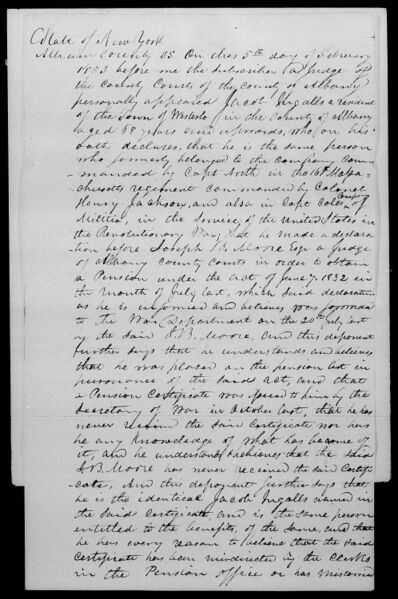 State of New York
Albany County SS. On this 5th day of February
1833 before me the Subscriber a Judge of
the County Courts of the county of Albany
personally appeared Jacob Ingalls a resident
of the Town of Westerlo in the County of Albany
aged 68 years and upwards, who on his
oath declares, that he is the same person
who formerly belonged to the Company com-
manded by Capt North in the 16th Massa-
chusetts regiment commanded by Colonel
Henry Jackson, and also in Capt Coles Company of
Militia, in the Service of the United States in
the Revolutionary War, that he made a declara-
tion before Joseph B. Moore Esq a Judge
of Albany County Courts in order to obtain
a Pension under the act of June 7. 1832 in
the month of July last, which said declaration
as he is informed and believes was forwarded
to the War Department on the 20th July last
by the said J.B. Moore, and this deponent
further says that he understands and believes
that he was placed on the pension list in
pursuance of the said act, and that
a Pension Certificate was issued to him by the
Secretary of War in October last, that he has
never received the said Certificate nor has
he any knowledge of what has become of
it, and he understands & believes that the said
J.B. Moore has never received the said Certifi-
cate, And this deponent further says that
he is the identical Jacob Ingalls named in
the said certificate and is the same person
entitled to the benefits, of the same, and that
he has every reason to believe that the said
Certificate has been misdirected by the Clerks
in the Pension office or has miscarried